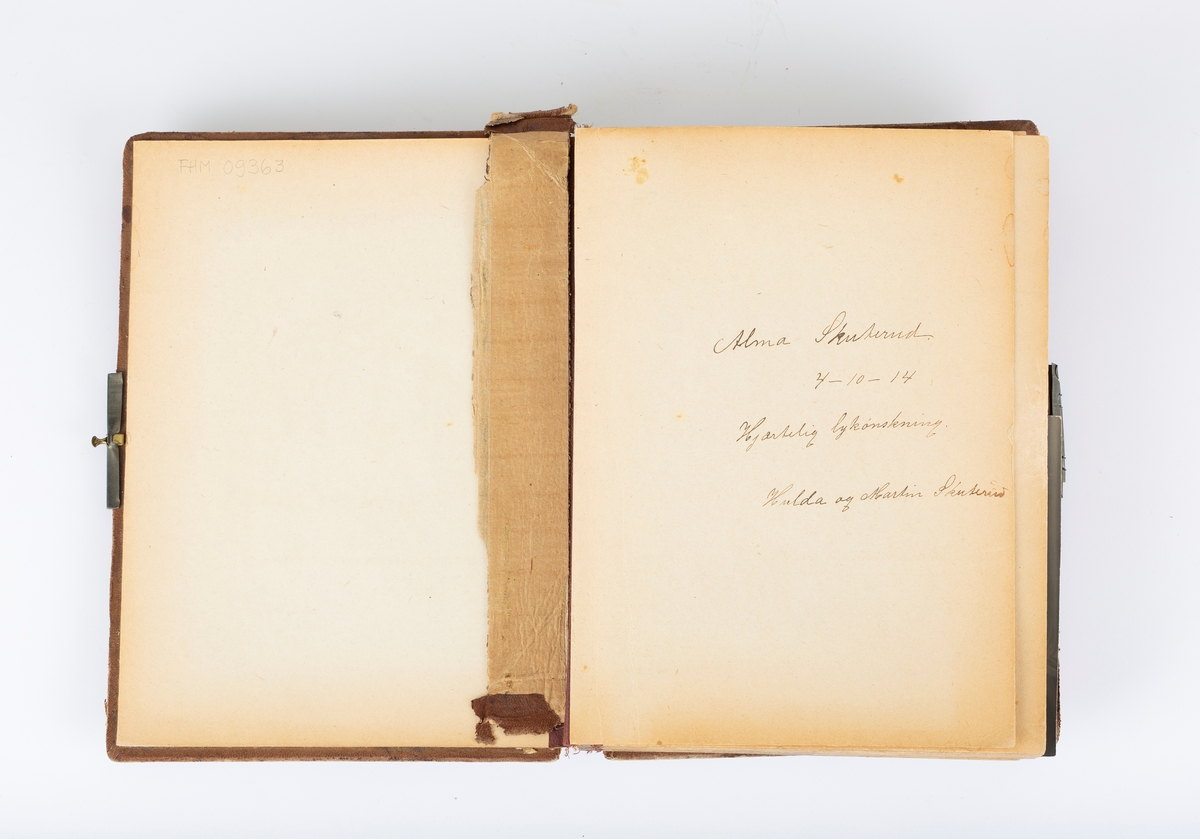 FHM 09363
Alma Skuterud.
4-10-14
Hjærtelig lykønskning.
Hulda og Martin Skuterud